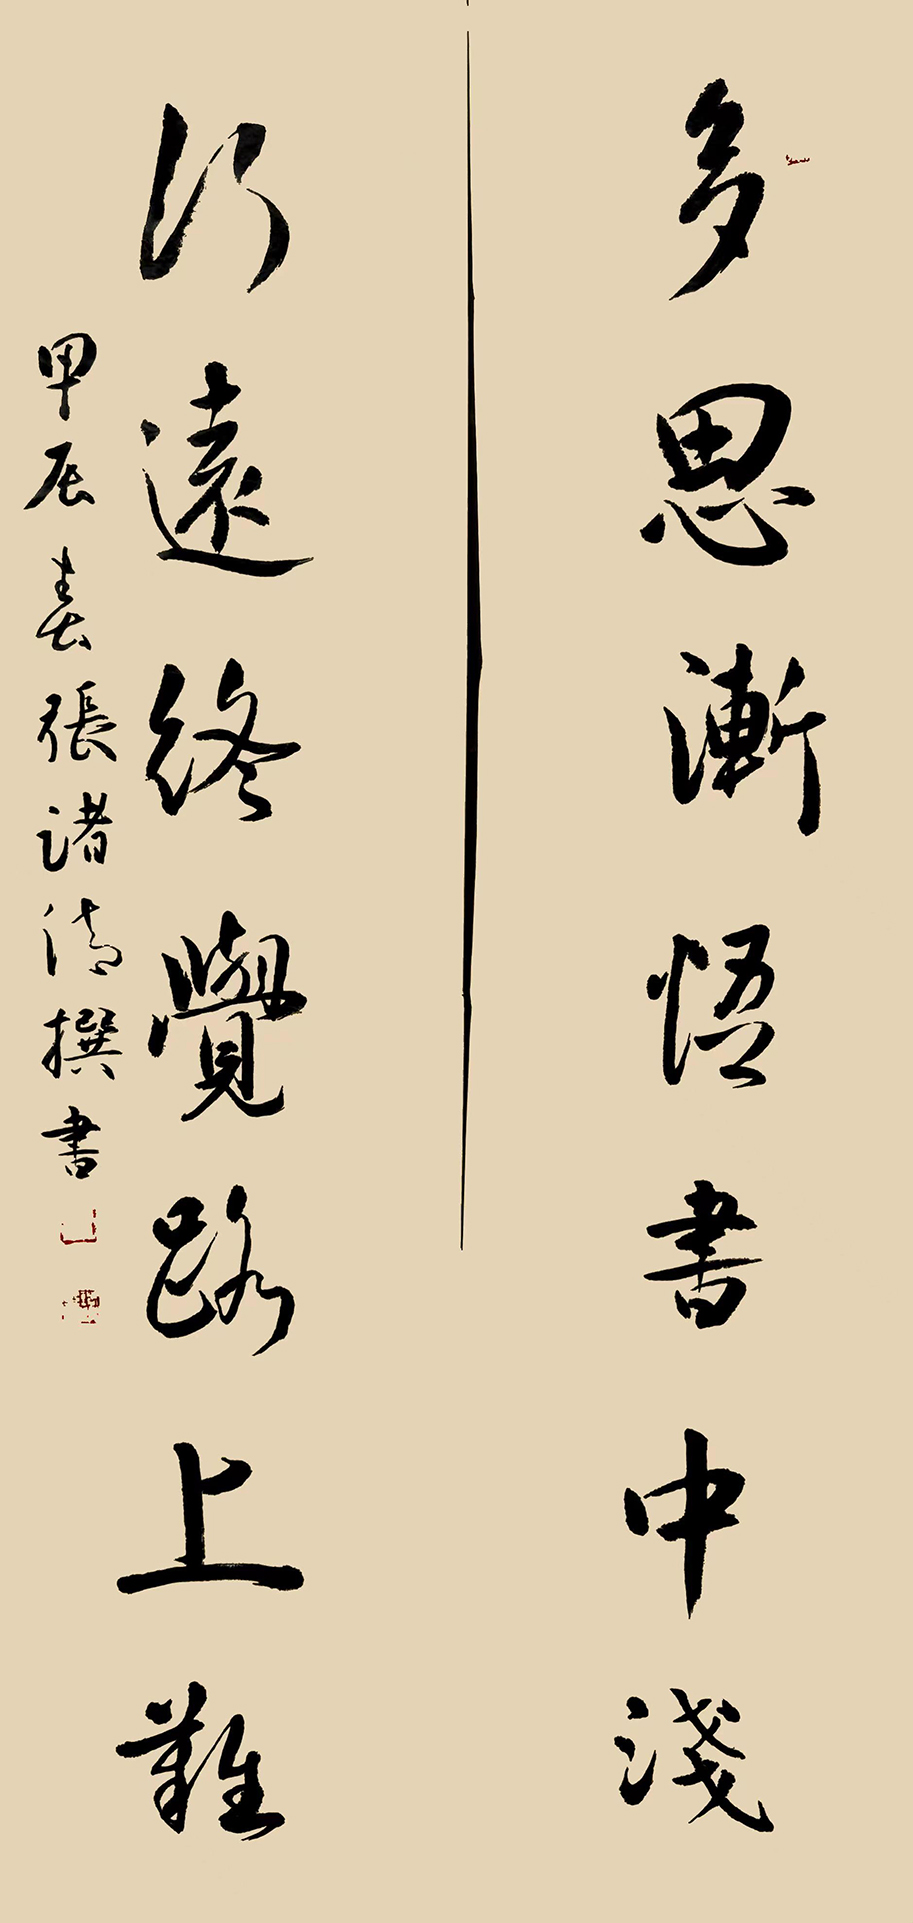 多思漸悟書中淺
行遠終覺路上難
甲辰春張諸清撰書